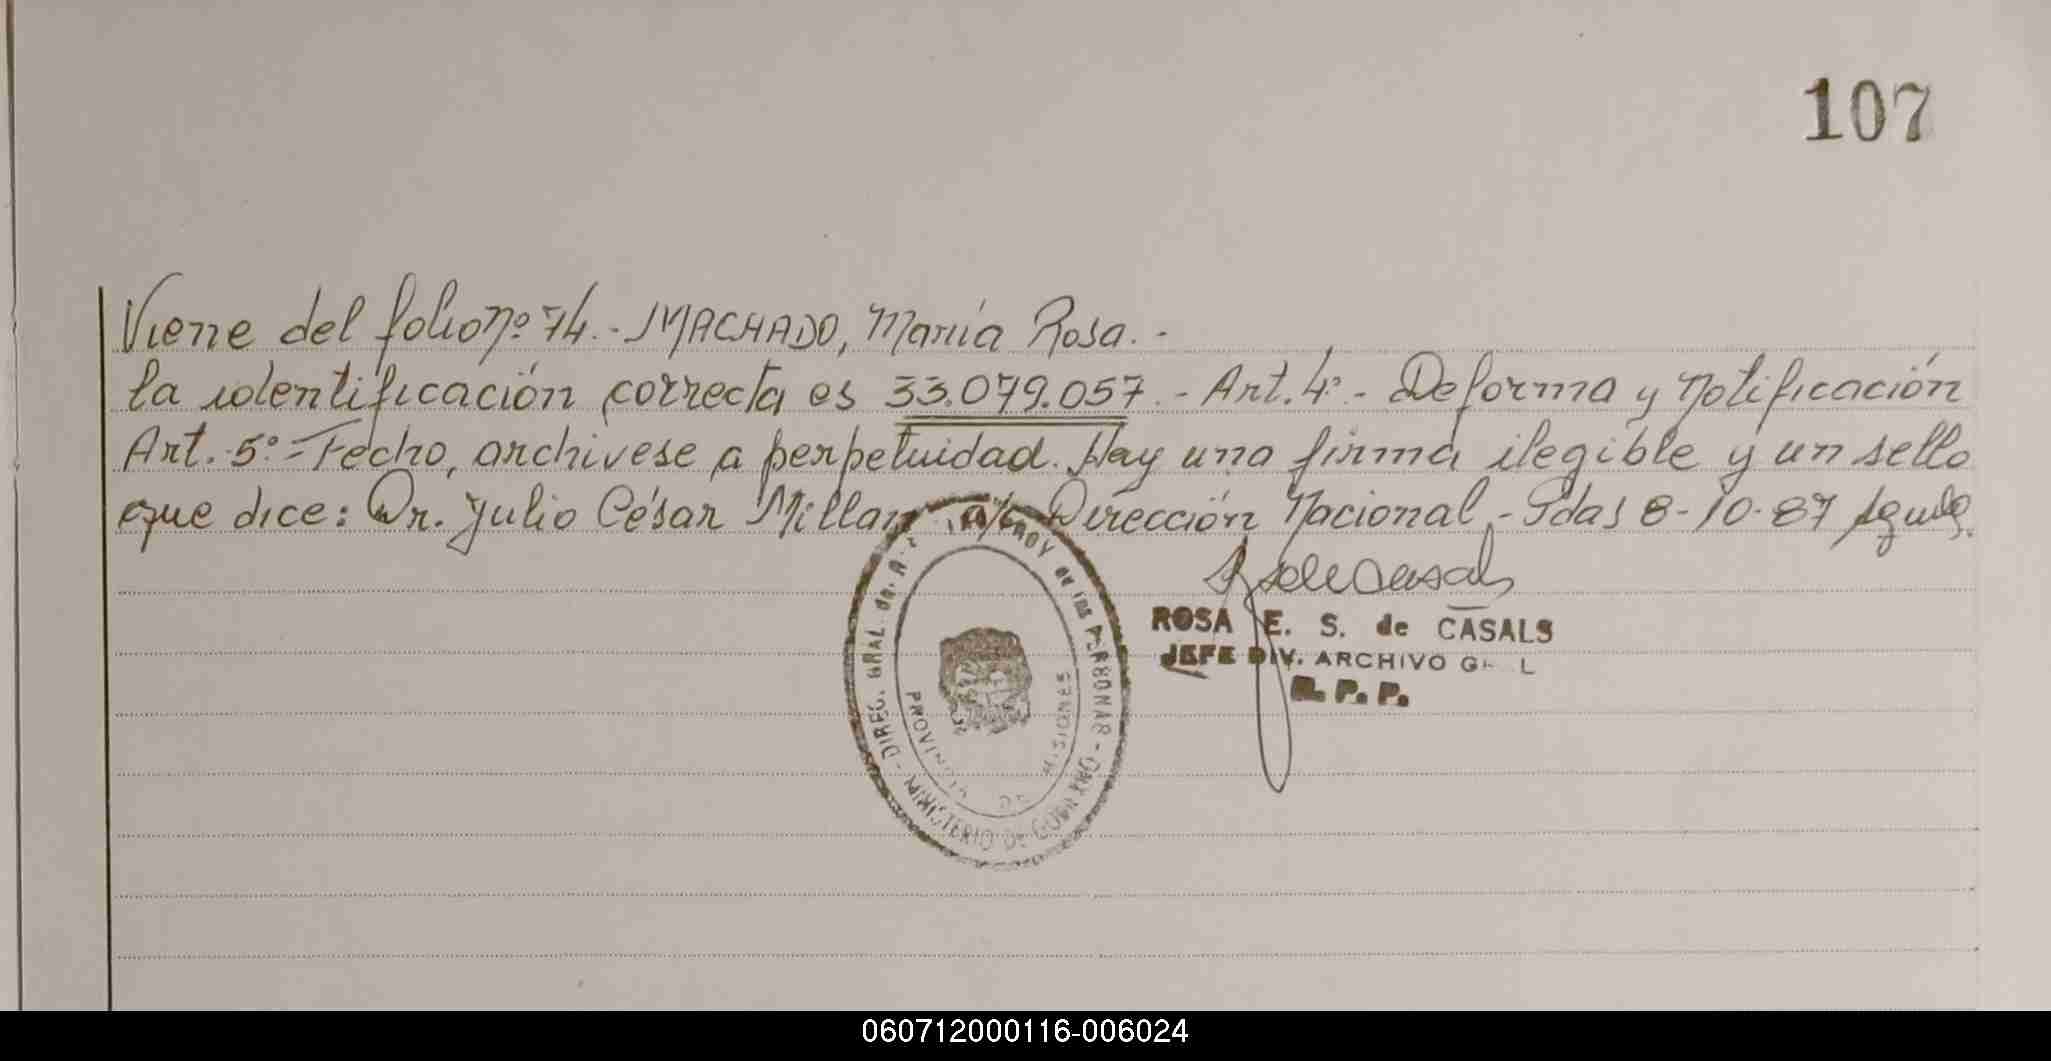 107
Viene del folio nº 74.- MACHADO, María Rosa.-
la identificación correcta es 33.079.057.- Art. 4º.- De forma y notificación
Art. 5º.- Fecho, archivese a perpetuidad. Hay una firma ilegible y un sello
que dice: Dr. Julio César Millan Dirección Nacional.- Pdas 8-10-87
ROSA E. S. de CASALS
JEFE DIV. ARCHIVO
R. P. P.
DIREC. GRAL. de las PERSONAS - MINISTERIO DE
PROVINCIA DE MISIONES
060712000116-006024